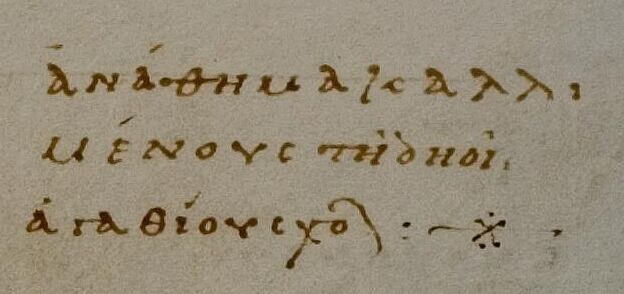 ἀνάθημα καλλι
μένους τῆ δηοῖ.
ἀγαθίου σχο⟨λ⟩ : ~ ※ -